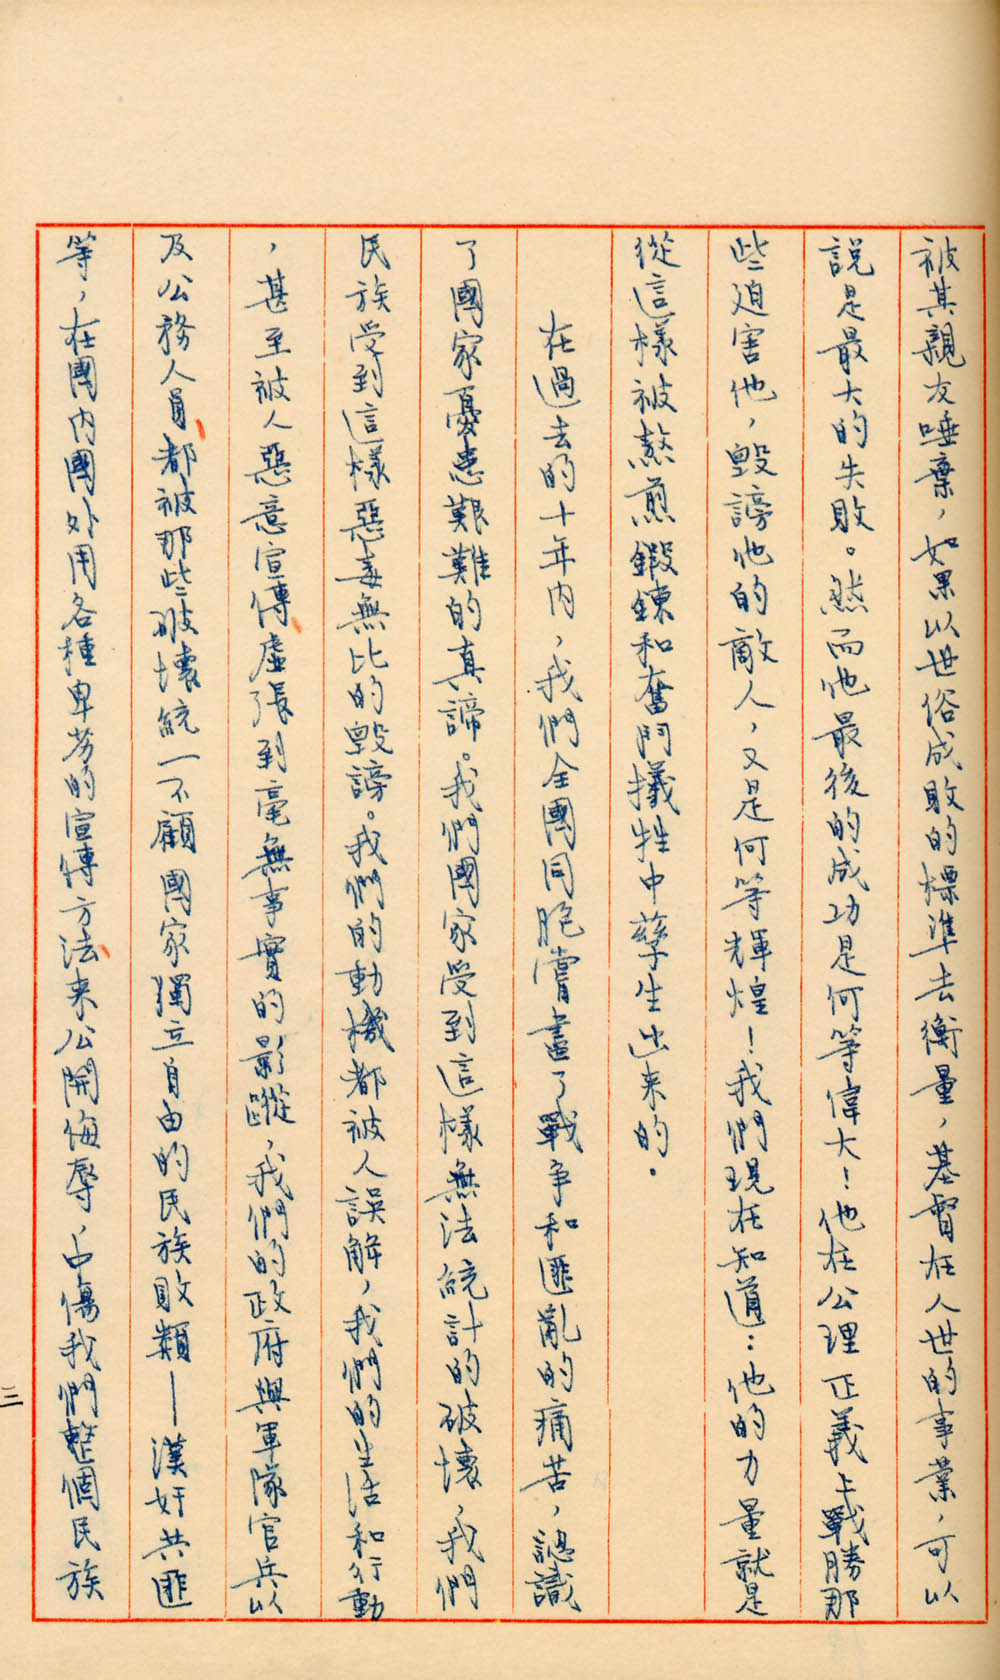 被其親友唾棄，如果以世俗成敗的標準去衡量，基督在人世的事業，可以
說是最大的失敗。然而他最後的成功是何等偉大！他在公理正義上戰勝那
些迫害他，毀謗他的敵人，又是何等輝煌！我們現在知道：他的力量就是
從這樣被熬煎鍛鍊和奮鬥犧牲中孳生出来的。
在過去的十年内，我們全國同胞嘗盡了戰争和匪亂的痛苦，認識
了國家憂患艱難的真諦。我們國家受到這樣無法統計的破壞，我們
民族受到這樣惡毒無比的毀謗。我們的動機都被人誤解，我們的生活和行動
，甚至被人惡意宣傳、虛張到毫無事實的影蹤，我們的政府與軍隊官兵以
及公務人員、都被那些破壞統一不顧國家獨立自由的民族敗類——漢奸共匪
等，在國内國外用各種卑劣的宣傳方法、来公開侮辱，中傷我們整個民族
三